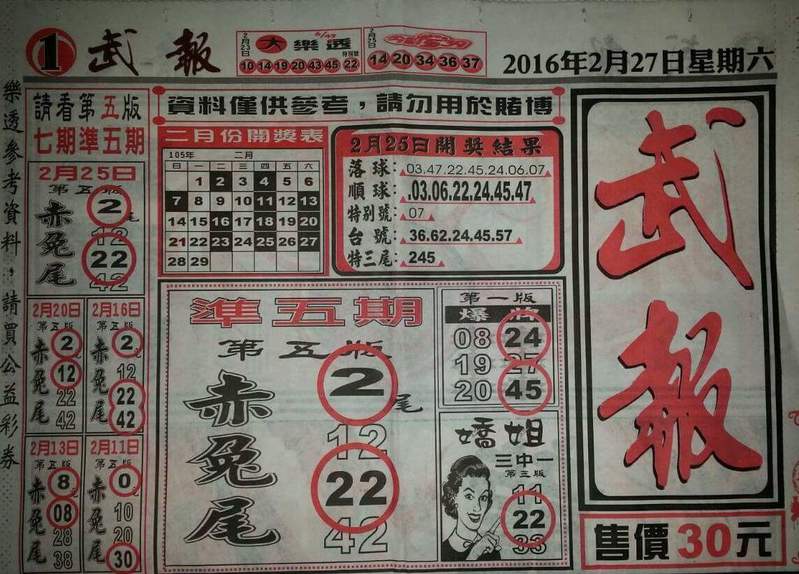 1 武報
2月23日 大樂透 6/49 特別號
10 14 19 20 43 45 22
2月25日
14 20 34 36 37
2016年2月27日星期六
樂透參考資料，請買公益彩券
請看第五版
七期準五期
2月25日
第五版
赤兔尾
2尾
12
22
42
2月20日
第五版
赤兔尾
2
12
22
42
2月16日
第五版
赤兔尾
2
12
22
42
2月13日
第五版
赤兔尾
8
08
28
38
2月11日
第五版
赤兔尾
0
10
20
30
資料僅供參考，請勿用於賭博
二月份開獎表
105年 二月
日 一 二 三 四 五 六
1 2 3 4 5 6
7 8 9 10 11 12 13
14 15 16 17 18 19 20
21 22 23 24 25 26 27
28 29
2月25日開獎結果
落球：03.47.22.45.24.06.07
順球：.03.06.22.24.45.47
特別號：07
台號：36.62.24.45.57
特三尾：245
準五期
第五版
赤兔尾
2尾
12
22
42
第一版
08 24
19 27
20 45
嬌姐
三中一
第三版
11
22
33
武報
售價30元